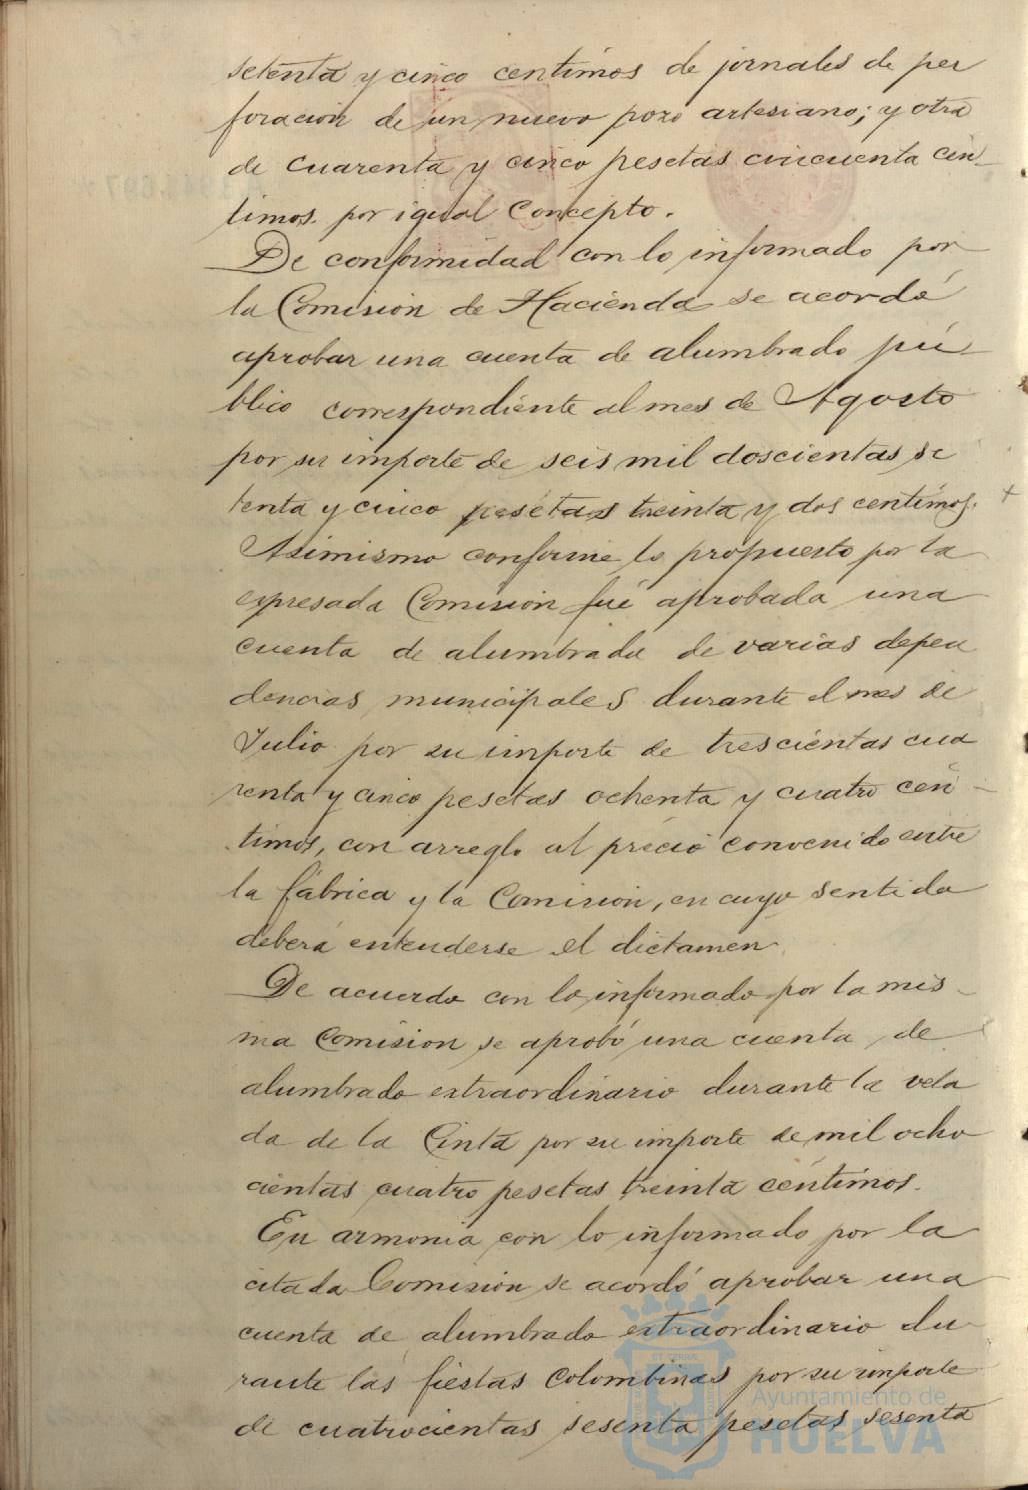 setenta y cinco centimos de jornales de per
foracion de un nuevo pozo artesiano; y otra
de cuarenta y cinco pesetas cincuenta cen-
timos por igual concepto.
De conformidad con lo informado por
la Comision de Hacienda se acordó
aprobar una cuenta de alumbrado pú-
blico correspondiente al mes de Agosto
por su importe de seis mil doscientas se
tenta y cinco pesetas treinta y dos centimos.
Asimismo conforme lo propuesto por la
expresada Comision fué aprobada una
cuenta de alumbrado de varias depen
dencias municipales durante el mes de
Julio por su importe de trescientas cua
renta y cinco pesetas ochenta y cuatro cen-
timos, con arreglo al precio convenido entre
la fábrica y la Comision, en cuyo sentido
deberá entenderse el dictamen.
De acuerdo con lo informado por la mis-
ma Comision se aprobó una cuenta de
alumbrado extraordinario durante la vela
da de la Cinta por su importe de mil ocho
cientas cuatro pesetas treinta centimos.
En armonia con lo informado por la
citada Comision se acordó aprobar una
cuenta de alumbrado extraordinario du-
rante las fiestas Colombinas por su importe
de cuatrocientas sesenta pesetas sesenta
Ayuntamiento de
HUELVA